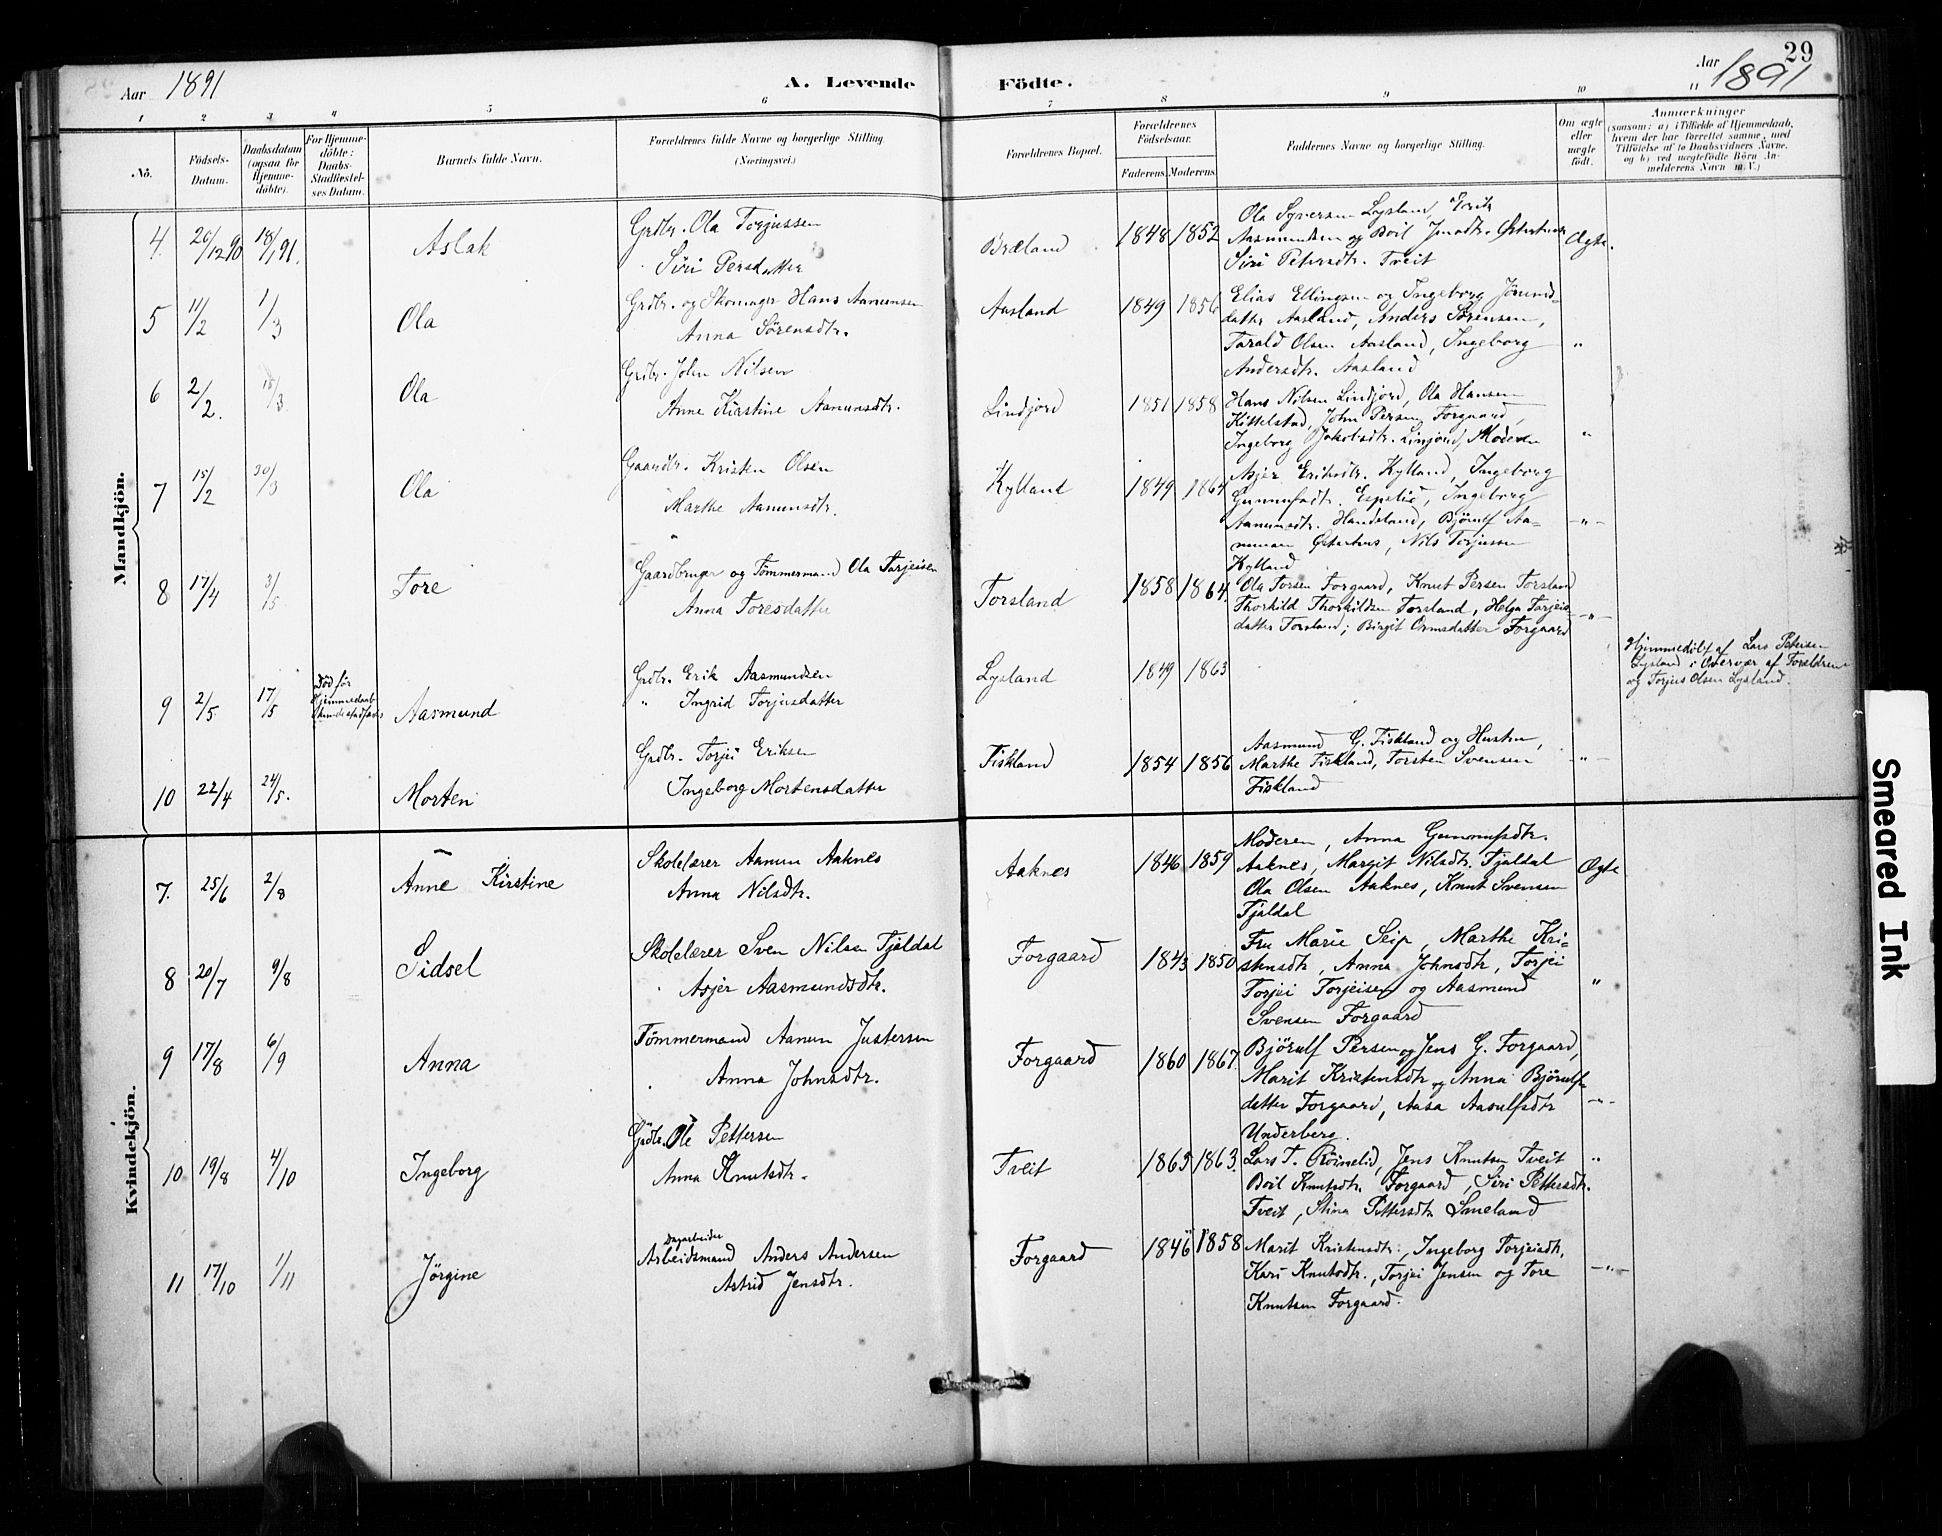 Aar 1891
A. Levende Födte.
Aar 1891
29
1 2 3 4 5 6 7 8 9 10 11
No.
Födsels-Datum.
Daabsdatum (ogsaa for Hjemme-döbte).
For Hjemme-döbte: Daabs-Stadfæstel-ses Datum.
Barnets fulde Navn.
Forældrenes fulde Navne og borgerlige Stilling. (Næringsvei.)
Forældrenes Bopæl.
Forældrenes Födselsaar.
Faderens. Moderens.
Faddernes Navne og borgerlige Stilling.
Om ægte eller uægte født.
Anmærkninger (saasom: a) i Tilfælde af Hjemmedaab, hvem der har forrettet samme, med Tilføielse af to Daabsvidners Navne, og b) ved uægtefödte Börn An-melderens Navn m.V.)
Mandkjön.
4. 26/12 90 18/1 91. Aslak
Grdbr. Ola Torjussen
Siri Persdatter
Bræland 1848 1852
Ola Syversen Lysland,
Aasmundsen og Boil Jensdtr.
Siri Petersdtr. Tveit
Ægte.
5 11/2 1/3 Ola
Grdbr. og Skomager Hans Aanunsen
Anna Sørensdtr.
Aasland 1849 1856
Elias Ellingsen og Ingeborg Jörund-
datter Aasland, Anders Sørensen,
Tarald Olsen Aasland, Ingeborg
Andersdtr. Aasland
"
6 2/2. 15/3 Ola
Grdbr. John Nilsen
Anne Kirstine Aanunsdtr.
Lindjord 1851 1858
Hans Nilsen Lindjord, Ola Hansen
Kittelstad, John Persen Forgaard,
Ingeborg Jakobsdtr. Linjord, Moderen
"
7 15/2 30/3 Ola
Gaardbr. Kristen Olsen
Marthe Aanunsdtr.
Kylland 1849 1864
Asjer Eriksdtr. Kylland, Ingeborg
Gunnufsdtr. Espelid, Ingeborg
Aanunsdtr. Handeland, Bjørulf Aa-
nunsen Østerhus, Nils Torjussen
Kylland
-"-
8 17/4 3/5 Tore
Gaardbruger og Tömmermand Ola Torjeisen
Anna Toresdatter
Torsland 1858 1864.
Ola Torsen Forgaard, Knut Persen Torsland
Thorkild Thorkildsen Torsland, Helga Torjeis-
datter Torsland; Birgit Ormsdatter Forgaard
-"-
9 2/5 17/5
Død før
Hjemmedaab
Aasmund
Grdbr. Erik Aasmundsen
" Ingrid Torjusdatter
Lysland 1849 1863
Hjemmedöbt af Lars Petersen
Lysland i Overvær af Forældrene
og Torjus Olsen Lysland.
10 22/4 24/5. Morten
Grdbr. Torjei Eriksen
Ingeborg Mortensdatter
Fiskland 1854 1856
Aasmund G. Fiskland og Hustru,
Marthe Fiskland, Torsten Svensen
Fiskland
-"-
Kvindekjön.
7. 25/6 2/8 Anne Kirstine
Skolelærer Aanun Aaknes
Anna Nilsdtr.
Aaknes 1846 1859
Moderen, Anna Gunnufsdtr.
Aaknes, Margit Nilsdtr. Tjaldal
Ola Olsen Aaknes, Knut Svensen
Tjaldal
Ægte
8 20/7 9/8 Sidsel
Skolelærer Sven Nilsen Tjaldal
Asjer Aasmundsdtr.
Forgaard 1843 1850
Fru Marie Seip, Marthe Kri-
stensdtr, Anna Johnsdtr, Torjei
Torjei Torjeisen og Aasmund
Svensen Forgaard
"
9 17/8 6/9 Anna
Tömmermand Aanun Justersen
Anna Johnsdtr.
Forgaard 1860 1867.
Bjørulf Persen og Jens G. Forgaard,
Marit Kristensdtr og Anna Bjørulfs-
datter Forgaard, Aasa Aasulfsdtr
Underberg.
-"-
10 19/8 4/10 Ingeborg
Grdbr. Ole Pettersen
Anna Knutsdtr.
Tveit 1865 1863.
Lars T. Röinelid, Jens Knutsen Tveit
Boil Knutsdtr. Forgaard, Siri Pettersdtr.
Tveit, Stina Pettersdtr Smeland
"
11 17/10 1/11 Jörgine
Dagarbeider
Arbeidsmand Anders Andersen
Astrid Jensdtr.
Forgaard 1846 1858
Marit Kristensdtr., Ingeborg Torjeisdtr,
Kari Knutsdtr., Torjei Jensen og Tore
Knutsen Forgaard.
-"-
Smeared Ink